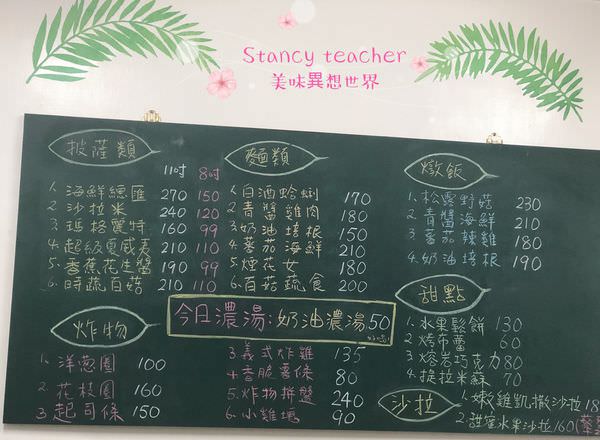 Stancy teacher
美味異想世界
披薩類
11吋 8吋
1. 海鮮總匯 270 150
2. 沙拉米 240 120
3. 瑪格麗特 160 99
4. 起級夏威夷 210 110
5. 香蕉花生醬 190 99
6. 時蔬百菇 210 110
麵類
1. 白酒蛤蜊 170
2. 青醬雞肉 180
3. 奶油培根 150
4. 番茄海鮮 210
5. 煙花女 180
6. 百菇蔬食 200
燉飯
1. 松露野菇 230
2. 青醬海鮮 210
3. 蕃茄辣雞 180
4. 奶油培根 190
今日濃湯:奶油濃湯50
炸物
1. 洋蔥圈 100
2. 花枝圈 160
3 起司條 150
3 義式炸雞 135
4 香脆薯條 80
5. 炸物拼盤 240
6. 小雞塊 90
甜點
1. 水果鬆餅 130
2. 烤布蕾 60
3. 熔岩巧克力 80
4. 提拉米蘇 70
沙拉
1. 嫩雞凱撒沙拉18
2. 甜蜜水果沙拉160